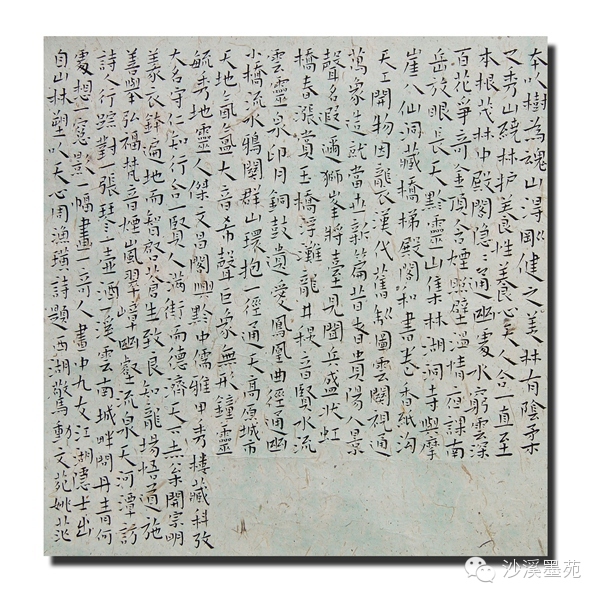 本以樹為魂山得剛健之美林有陰柔
之秀山繞林护善養性養心天人合一直至
本根茂林中殿閣隐隐通幽處水穷雲深
百花爭奇金頂含煙照壁溫情夜課南
岳放眼長天黔靈山集林湖洞寺與摩
崖八仙洞藏橋梯殿閣和書卷香紙溝
天工開物因襲漢代舊制圖雲閣視通
萬象造就當世新篇昔昔貴陽八景
聲名遐邇獅峯將臺見聞兵盛狀虹
橋春漲賞玉橋浮灘龍井秋音賢水流
雲靈泉印月銅鼓遺愛鳳凰曲徑通幽
小橋流水鴉關群山環抱一徑通天高原城市
天地氤氳大音希聲巨象無形鐘靈
毓秀地靈人傑文昌閣興黔中儒雅甲秀樓藏科孜
大名守仁知行合一賢人满街而德濟天下共公棠開宗明
義衣鉢遍地而智啓蒼生致良知龍場悟道施
善與本弘福梵音煙嵐翠嶂幽壑流泉天河潭訪
詩人行踪對一張琴一壺酒一溪雲南城畔問丹青何
處想一窓影一幅畫一哥人畫中九友江湖隱士出
自山林塑以天心周漁璜詩題西湖驚動文苑姚茫
沙溪墨苑